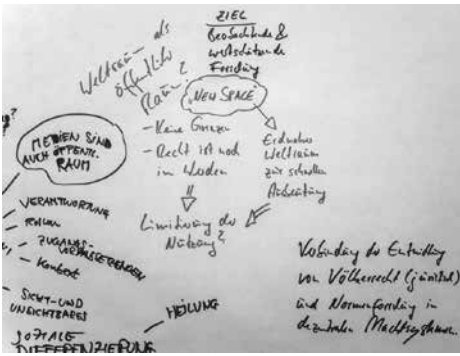 ZIEL
Beobachtende &
wertschätzende
Forschung
Weltraum als
öffentlicher
Raum?
"NEW SPACE"
- Keine Grenzen
- Recht ist noch
im Werden
Erdnaher
Weltraum
zur schnellen
Ausbeutung
Limitierung der
Nutzung?
MEDIEN SIND
AUCH ÖFFENTL.
RAUM
VERANTWORTUNG
Rollen
ZUGANGS-
VORAUSSETZUNGEN
Kontext
SICHT- UND
UNSICHTBARES
HEILUNG
SOZIALE
DIFFERENZIERUNG
Verbindung der Entwicklung
von Völkerrecht (juristisch)
und Normenforschung in
dezentralen Machtsystemen